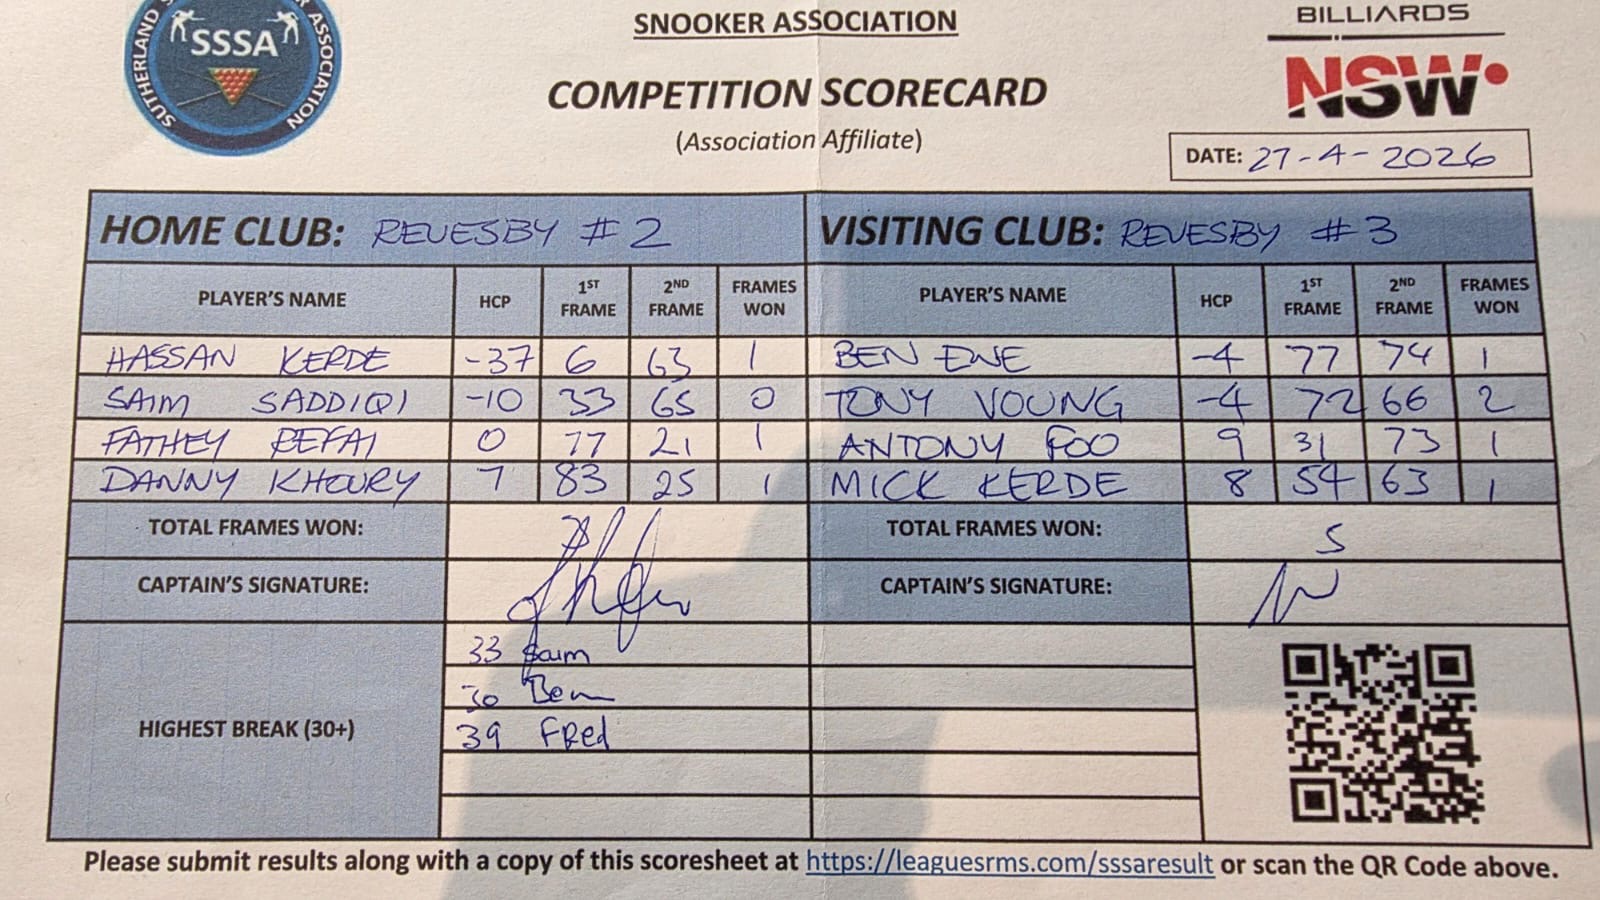 SUTHERLAND S ASSOCIATION
SSSA
SNOOKER ASSOCIATION
COMPETITION SCORECARD
(Association Affiliate)
BILLIARDS
NSW
DATE: 27-4-2026
HOME CLUB: REVESBY #2 VISITING CLUB: REVESBY #3
PLAYER'S NAME HCP 1ST FRAME 2ND FRAME FRAMES WON PLAYER'S NAME HCP 1ST FRAME 2ND FRAME FRAMES WON
HASSAN KERDE -37 6 63 1 BEN EWE -4 77 74 1
SAIM SADDIQI -10 33 65 0 TONY YOUNG -4 72 66 2
FATHEY REFAI 0 77 21 1 ANTONY FOO 9 31 73 1
DANNY KHOURY 7 83 25 1 MICK KERDE 8 54 63 1
TOTAL FRAMES WON: TOTAL FRAMES WON: 5
CAPTAIN'S SIGNATURE: CAPTAIN'S SIGNATURE:
33 Saim
30 Ben
HIGHEST BREAK (30+) 39 FRed
Please submit results along with a copy of this scoresheet at https://leaguesrms.com/sssaresult or scan the QR Code above.